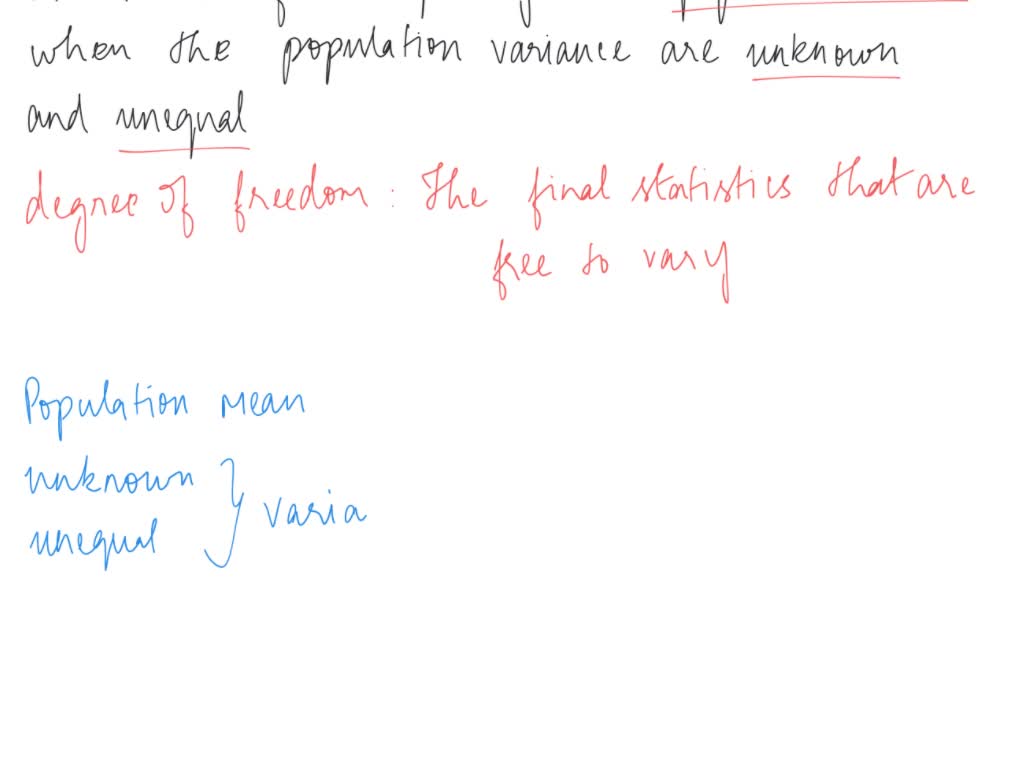 when the population variance are unknown
and unequal
degree of freedom : The final statistics that are
free to vary
Population mean
unknown
unequal } varia